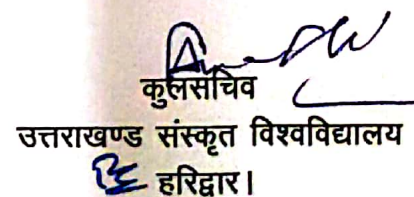 कुलसचिव
उत्तराखण्ड संस्कृत विश्वविद्यालय
हरिद्वार।